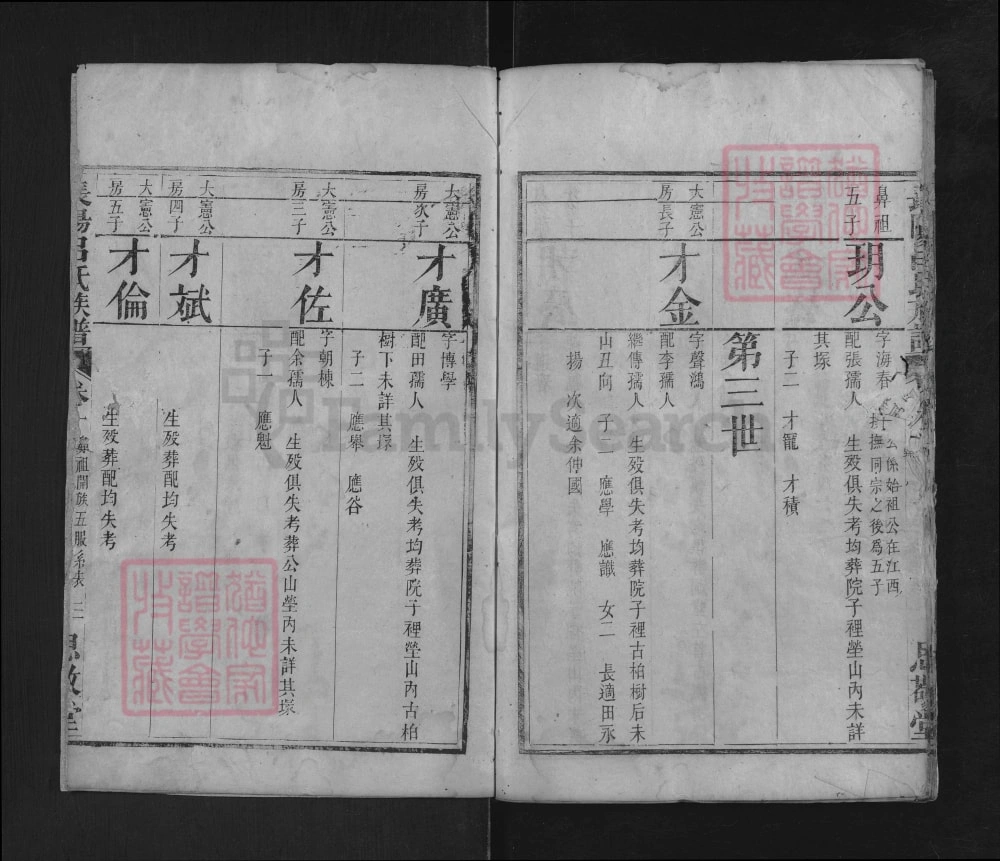 鼻祖
五子
玥公
字海春 公係始祖公在江西
抪撫同宗之後爲五子
配張孺人 生歿俱失考均葬院子裡塋山內未詳
其塚
子二 才寵 才積
第三世
大憲公
房長子
才金
字聲鴻
配李孺人
繼傳孺人 生歿俱失考均葬院子裡古柏樹后未
山丑向 子二 應學 應識 女二 長適田永
揚 次適余仲國
思敬堂
大憲公
房次子
才廣
字博學
配田孺人 生歿俱失考均葬院子裡塋山內古柏
樹下未詳其塚
子二 應舉 應谷
大憲公
房三子
才佐
字朝棟
配余孺人 生歿俱失考葬公山塋內未詳其塚
子一 應魁
大憲公
房四子
才斌
生歿葬配均失考
大憲公
房五子
才倫
生歿葬配均失考
長陽呂氏族譜 卷一 鼻祖開族五服系表 三 思敬堂
FamilySearch